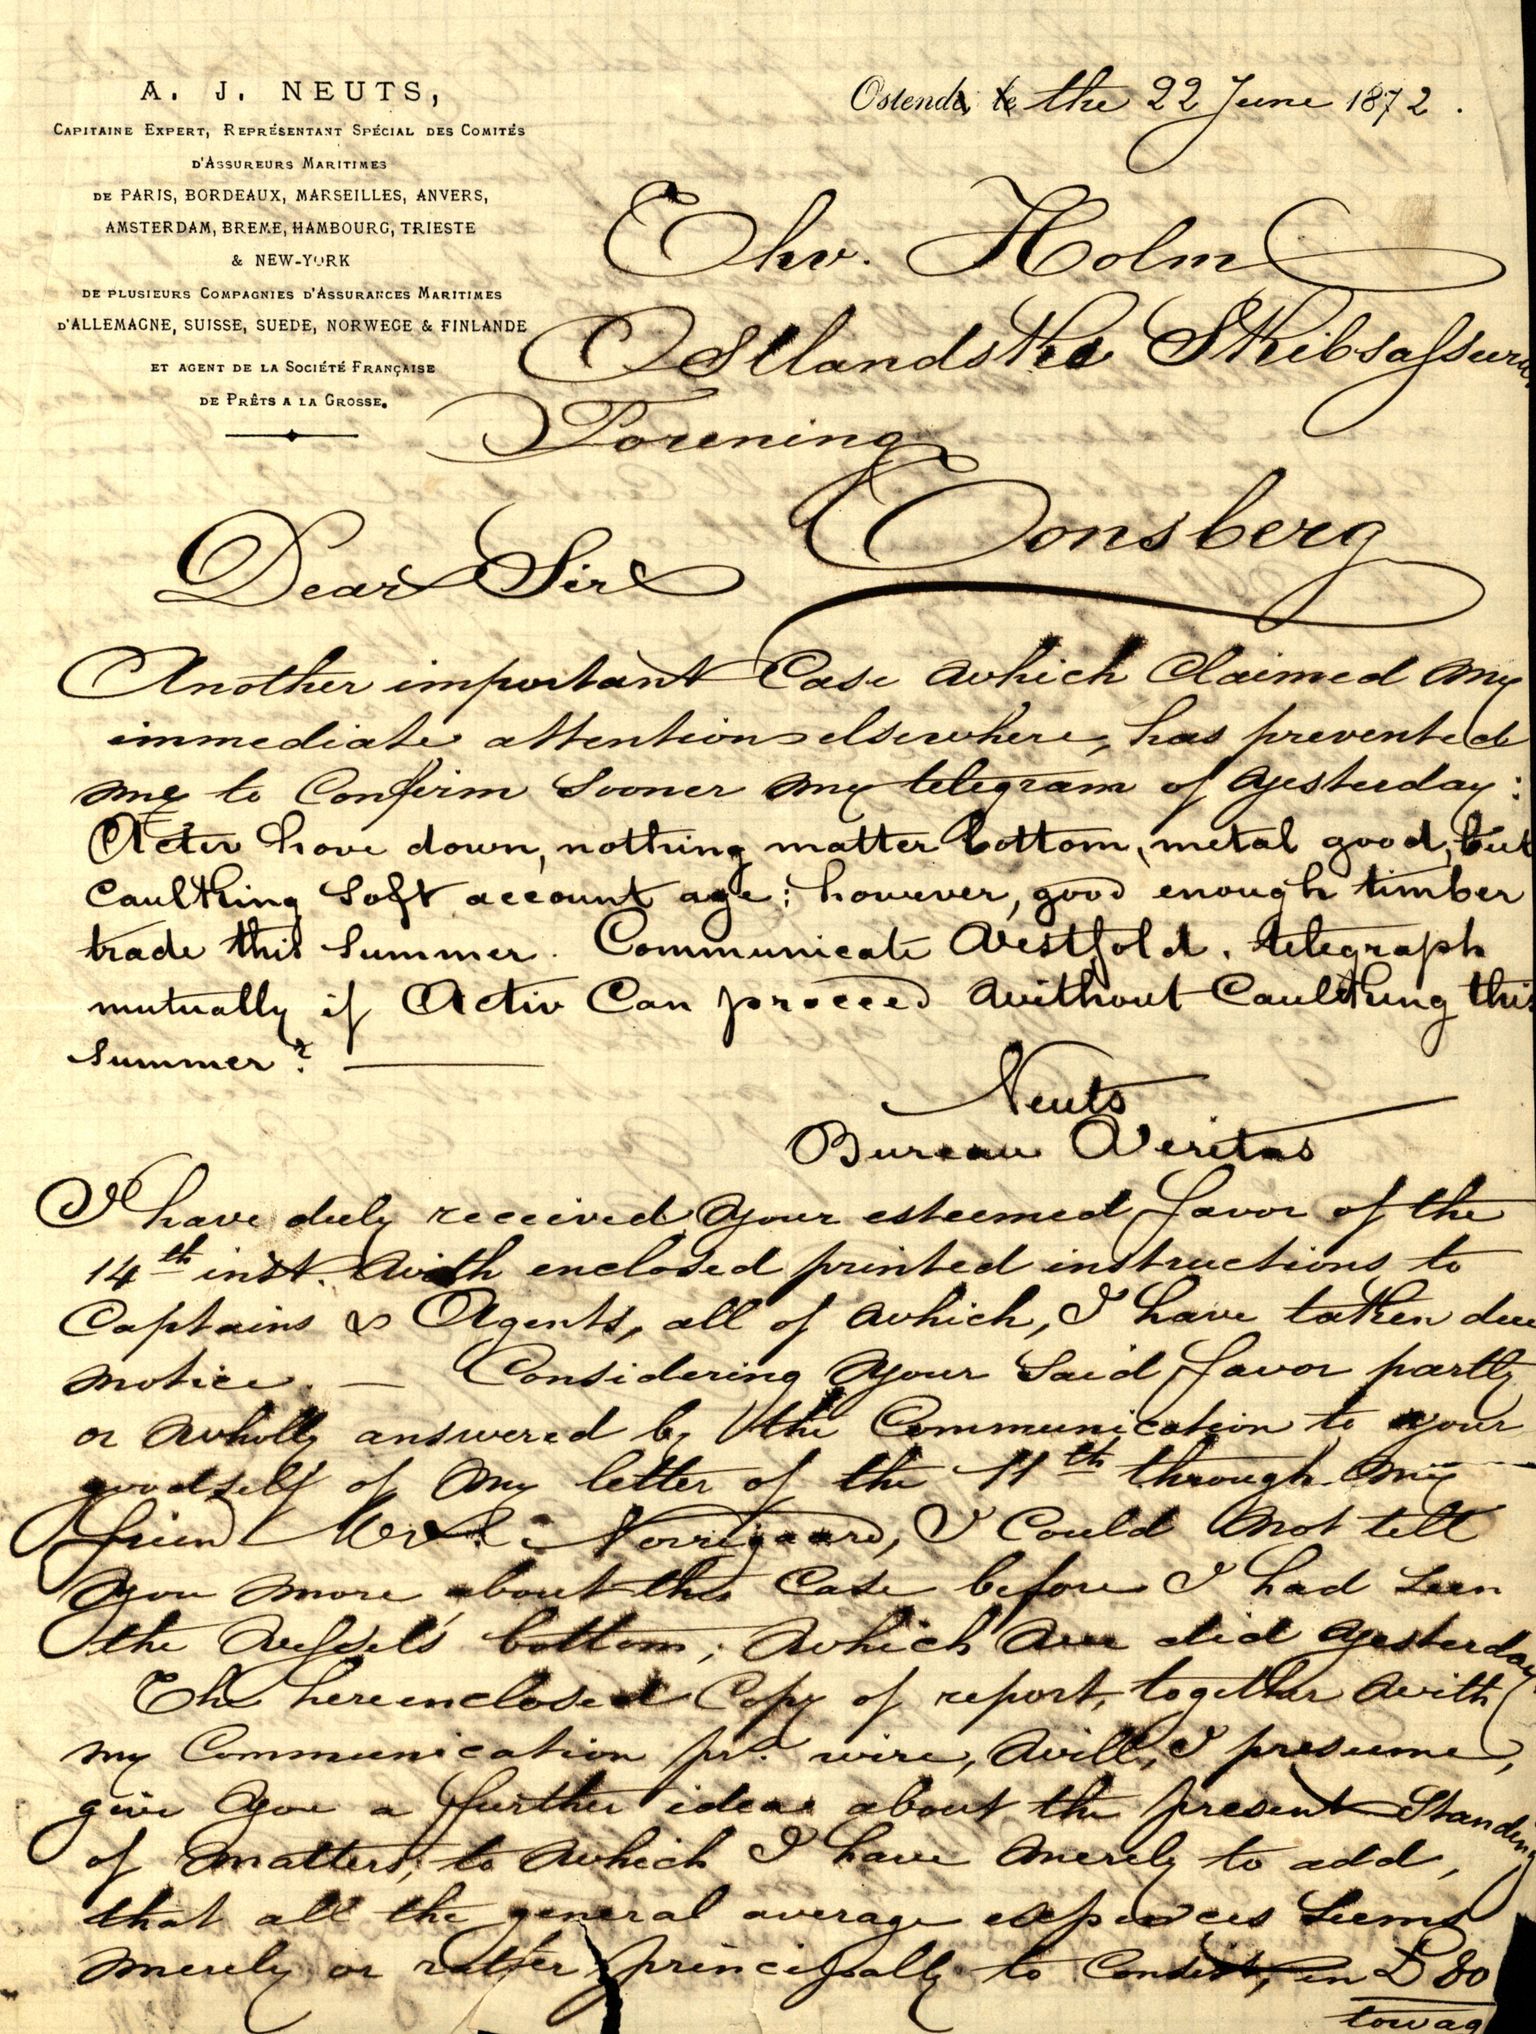 A. J. NEUTS,
CAPITAINE EXPERT, REPRÉSENTANT SPÉCIAL DES COMITÉS
D'ASSUREURS MARITIMES
DE PARIS, BORDEAUX, MARSEILLES, ANVERS,
AMSTERDAM, BREME, HAMBOURG, TRIESTE
& NEW-YORK
DE PLUSIEURS COMPAGNIES D'ASSURANCES MARITIMES
D'ALLEMAGNE, SUISSE, SUEDE, NORWEGE & FINLANDE
ET AGENT DE LA SOCIÉTÉ FRANÇAISE
DE PRÊTS A LA GROSSE.
Ostend, le the 22 June 1872.
Chr. Holm
Ostlandske Skibsassuran
Forening
Tonsberg
Dear Sir
Another important Case which Claimed my
immediate attention elsewhere, has prevented
me to Confirm sooner my telegram of yesterday:
Activ hove down, nothing matter bottom, metal good, but
Caulking soft account age: however, good enough timber
trade this summer. Communicate Vestfold, telegraph
mutually if Activ Can proceed without Caulking this
summer?
Neuts
Bureau Veritas
I have duly received your esteemed favor of the
14th inst. with enclosed printed instructions to
Captains & Agents, all of which, I have taken due
notice. — Considering your said favor partly
or wholly answered by the Communication to your
goodself of my letter of the 11th through my
friend Mr. Norregaard, I Could not tell
you more about this Case before I had seen
the vessel's bottom; which we did yesterday
The hereenclosed Copy of report, together with
my Communication pr. wire, will, I presume,
give you a further idea about the present Standing
of matters, to which I have merely to add,
that all the general average expences seems
merely or rather principally to Consist, in £ 80
towag